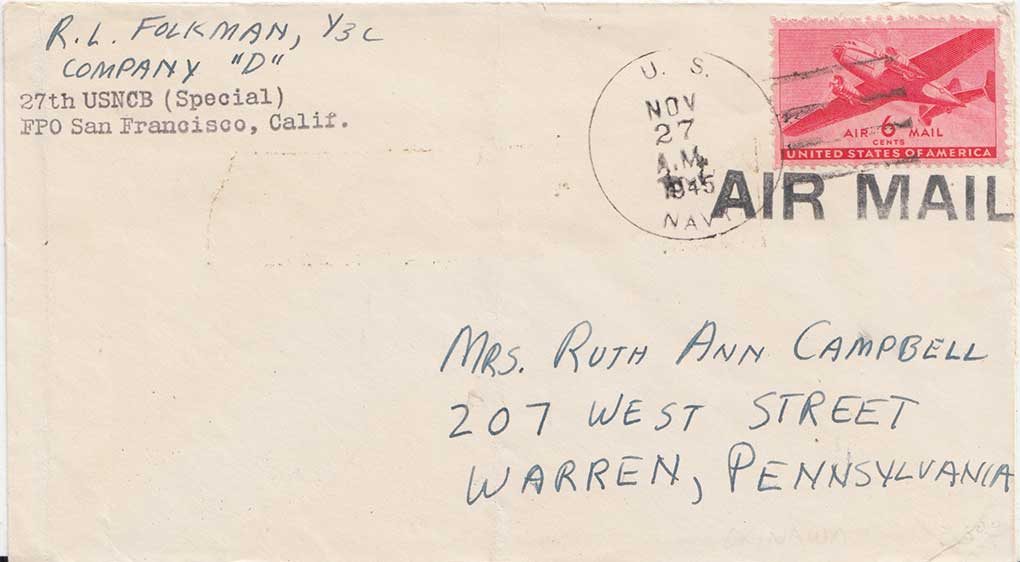 R. L. FOLKMAN, Y3C
COMPANY "D"
27th USNCB (Special)
FPO San Francisco, Calif.
U. S.
NOV
27
A.M.
1945
NAVY
AIR 6 MAIL
CENTS
UNITED STATES OF AMERICA
AIR MAIL
MRS. RUTH ANN CAMPBELL
207 WEST STREET
WARREN, PENNSYLVANIA
OKINAWA